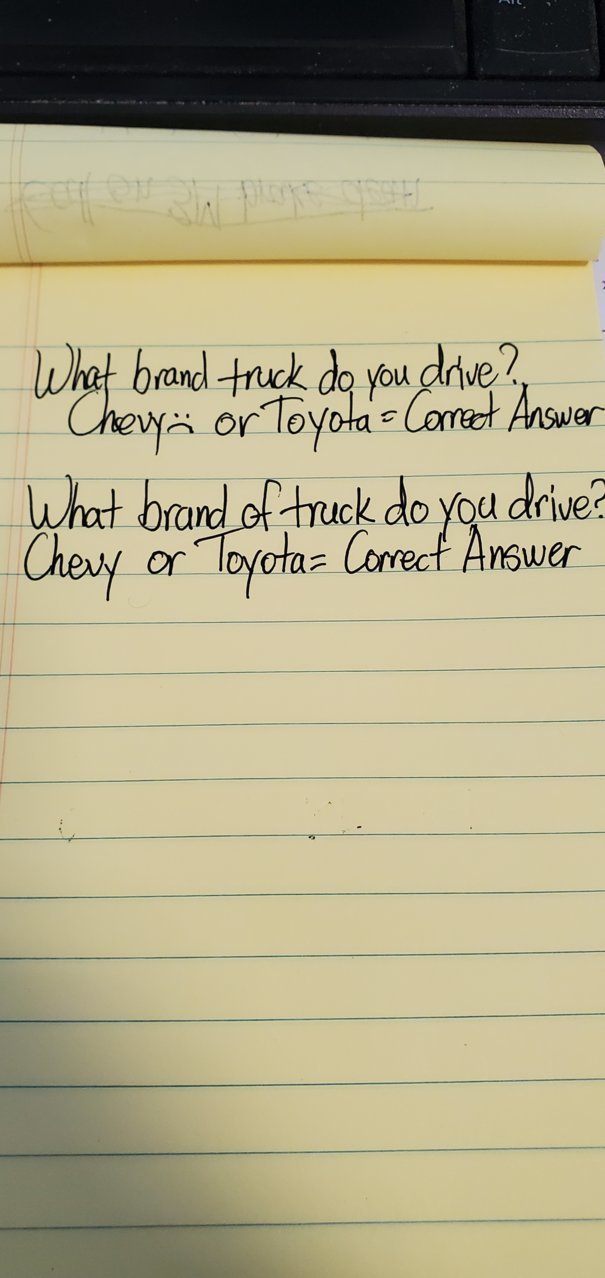 Alt
What brand truck do you drive?
Chevy or Toyota = Correct Answer
What brand of truck do you drive?
Chevy or Toyota = Correct Answer